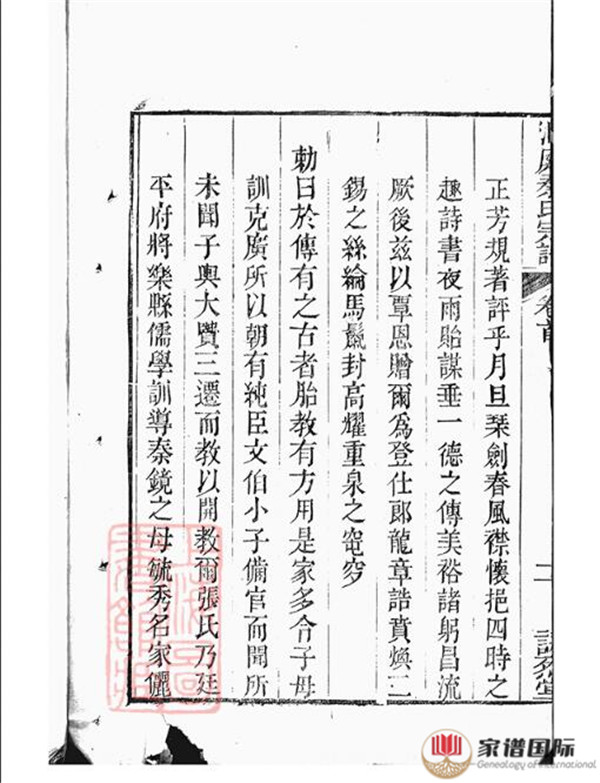 秦氏宗譜
卷首
二
正芳規著評乎月旦琹劍春風襟懷挹四時之
趣詩書夜雨貽謀垂一德之傳美裕諸躬昌流
厥後兹以覃恩贈爾爲登仕郎龍章誥賁煥二
錫之絲綸馬鬛封高耀重泉之窀穸
勅曰於傳有之古者胎教有方用是家多令子母
訓克廣所以朝有純臣文伯小子備官而聞所
未聞子輿大賢三遷而教以開教爾張氏乃廷
平府將樂縣儒學訓導秦鏡之母毓秀名家儷
家谱国际
Genealogy of International